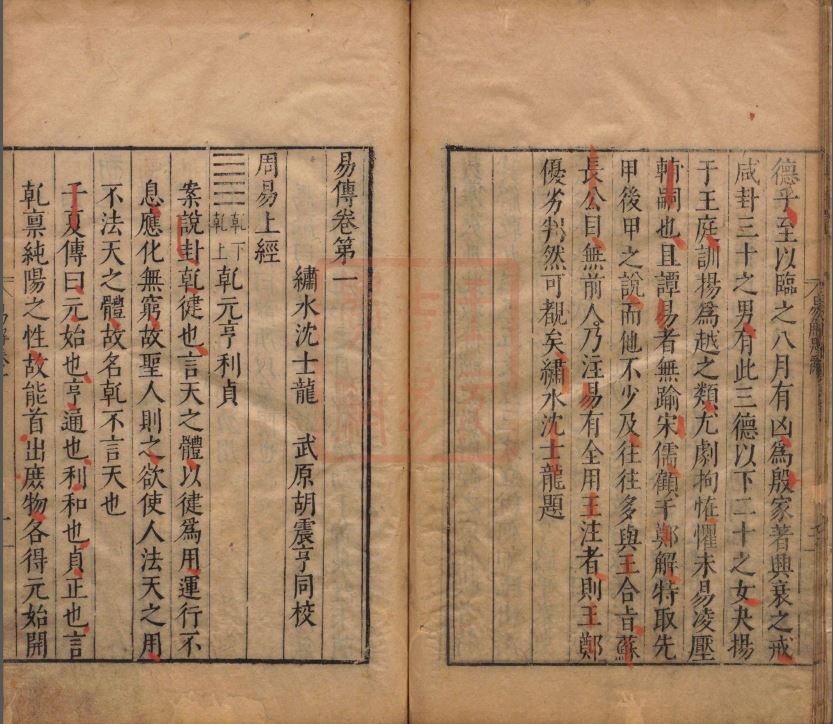 德乎至以臨之八月有凶為殷家著興衰之戒
咸卦三十之男有此三德以下二十之女夬揚
于王庭訓揚為越之類尤劇拘恠懼未易凌壓
輔嗣也且譚易者無踰宋儒顧于鄭解特取先
甲後甲之說而他不少及往往多與王合旨蘇
長公目無前人乃注易有全用王注者則王鄭
優劣判然可覩矣繡水沈士龍題
易傳卷第一
繡水沈士龍 武原胡震亨同校
周易上經
乾下
乾上
乾元亨利貞
案說卦乾健也言天之體以健為用運行不
息應化無窮故聖人則之欲使人法天之用
不法天之體故名乾不言天也
子夏傳曰元始也亨通也利和也貞正也言
乾禀純陽之性故能首出庶物各得元始開